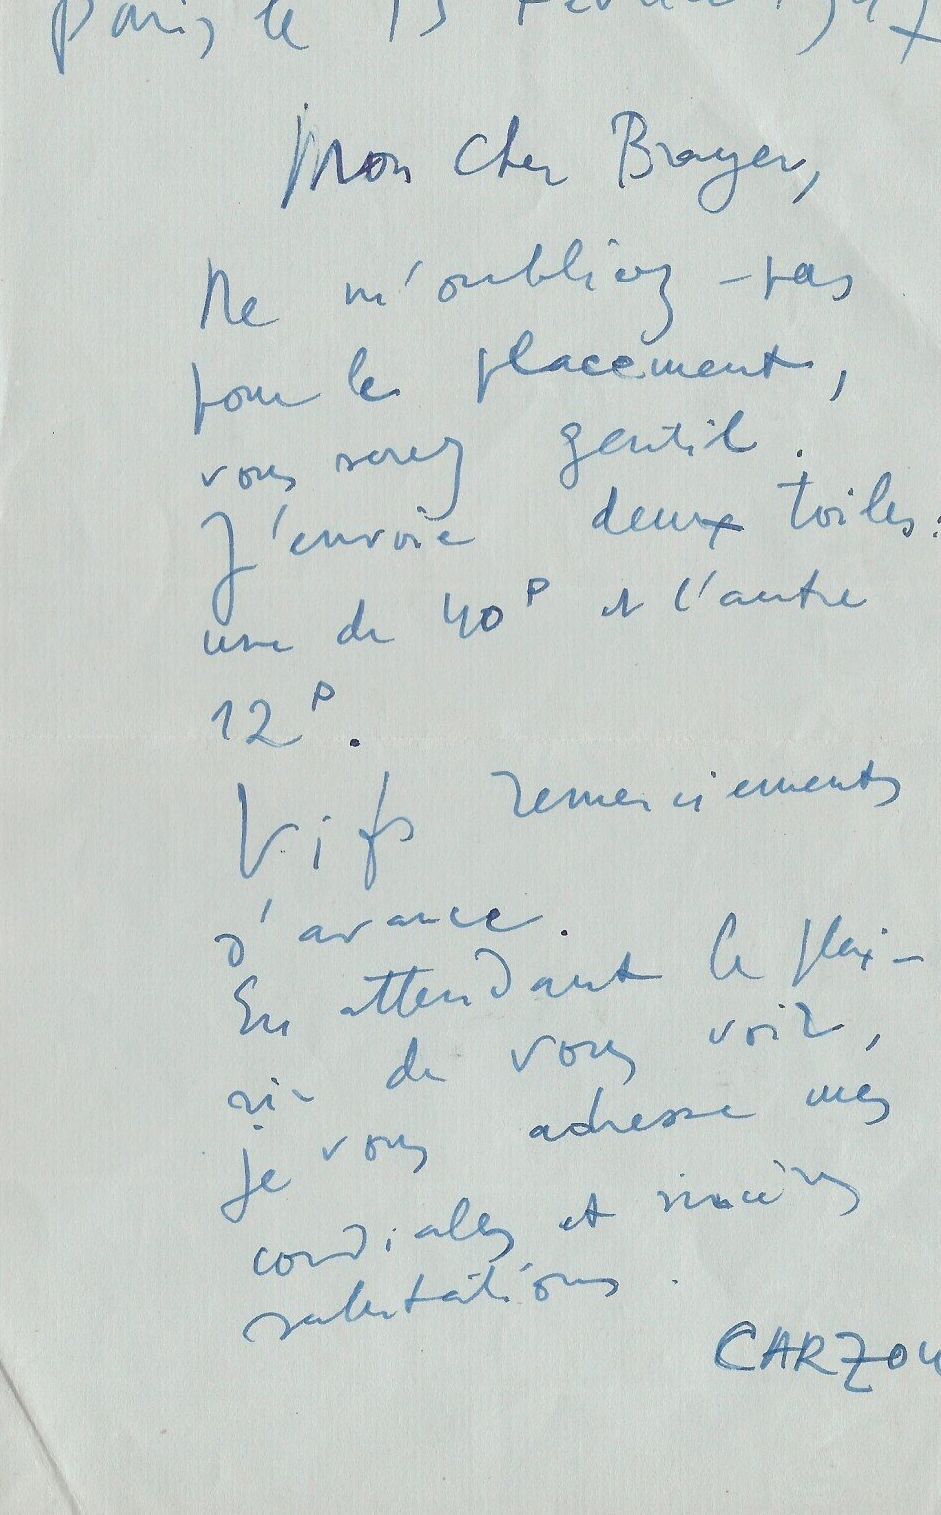 Paris le 13 Février 1947
Mon cher Brayer,
Ne m'oubliez-pas
pour le placement,
vous serez gentil.
J'envoie deux toiles:
une de 40 P et l'autre
12 P.
Vifs remerciements
d'avance.
En attendant le plai-
sir de vous voir,
je vous adresse mes
cordiales et sincères
salutations.
CARZOU